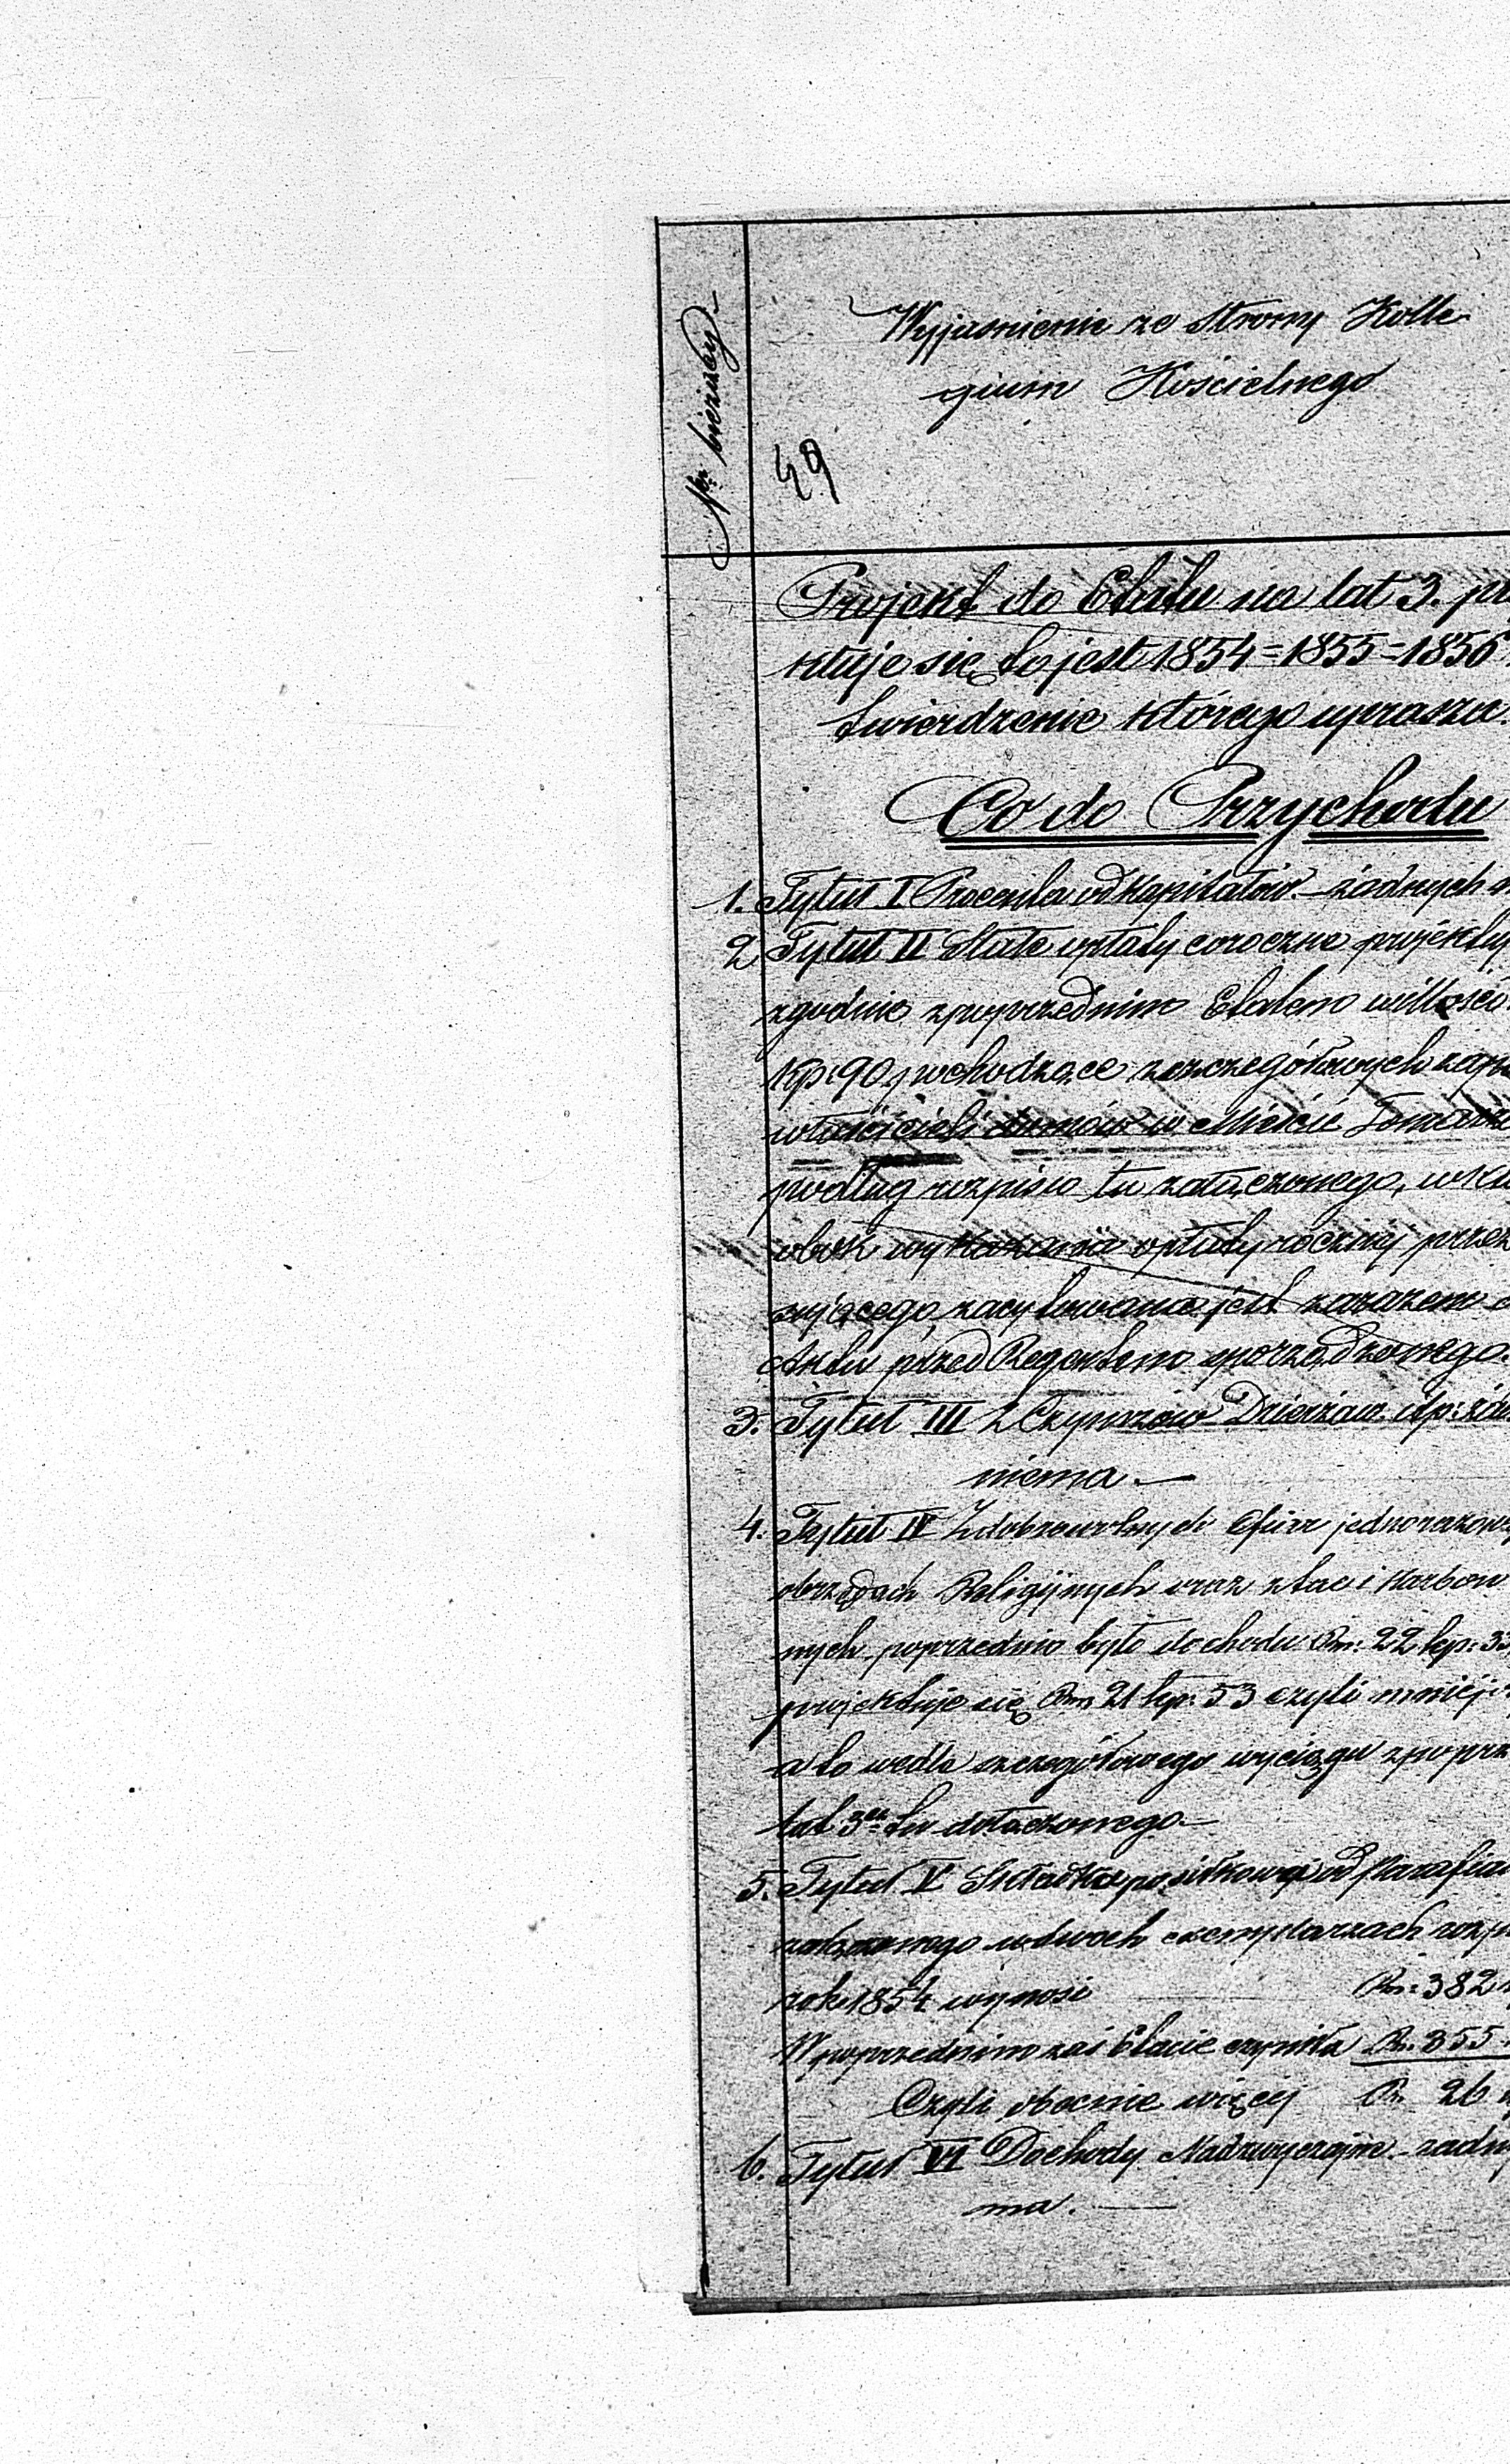 Nr bieżący
Wyjasnienie ze Strony Kolle-
gium Kościelnego
49
Projekt do Etatu na lat 3. pro
ktuje się to jest 1854=1855=1856
twierdzenie którego uprasza.
Co do Przychodu
1. Tytuł I Procenta od Kapitałów. - żadnych n
2. Tytuł II Stałe opłaty coroczne projektu
zgodnie z poprzednim Etatem w ilości
kp: 90 pochodzące z szczegółowych zapi
właścicieli domów w Mieście Tomaszo
podług rozpisu tu załączonego, w któ
obok wykazania opłaty rocznej przez
cytowana jest zarazem
Aktu przed Regentem sporządzonego.
3. Tytuł III Z Czynszów Dzierżaw. itp: żad
niema. —
4. Tytuł IV Z dobrowolnych Ofiar jednorazow
obrzędach Religijnych oraz z tac i karbon
nych, poprzednio było dochodu Rsr: 22 kp: 33
projektuje się Rsr 21 kp: 53 czyli mniej
a to wedle szczegółowego wyciągu z poprz
lat 3ch tu dołączonego. —
5. Tytuł V Składka posiłkowa od Parafian
załączonego w dwóch exemplarzach rozpi
rok 1854 wynosi Rsr: 382
W poprzednim zaś Etacie czyniła Rsr. 355
Czyli obecnie więcej Rsr 26
6. Tytuł VI Dochody Nadzwyczajne. - żadny
ma. —